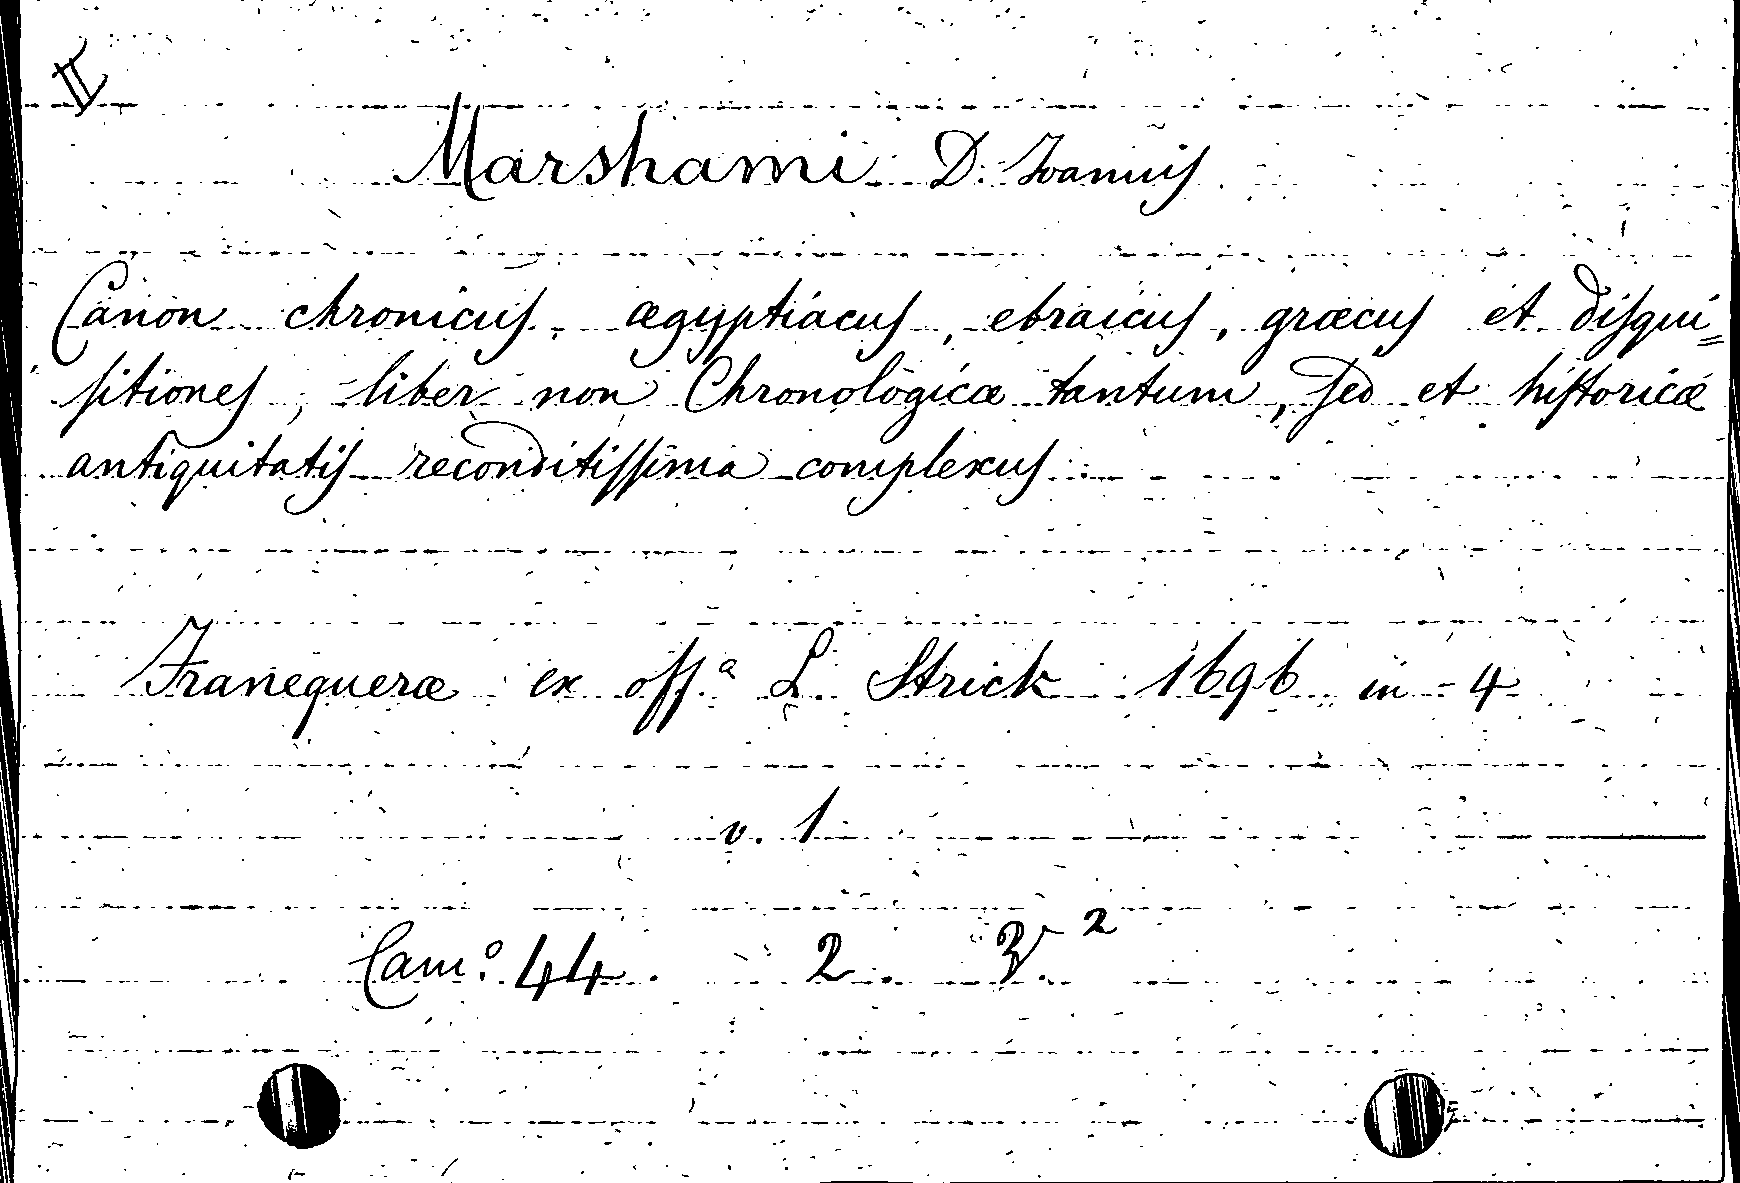 II
Marshami D. Ioannis
Canon chronicus, ægyptiacus, ebraicus, græcus et disqui=
sitiones, liber non Chronologicæ tantum, sed et historicæ
antiquitatis reconditissima complexus
Franequeræ ex off.ª L. Strick 1696 in-4
v. 1
Cam.º 44. 2. 2